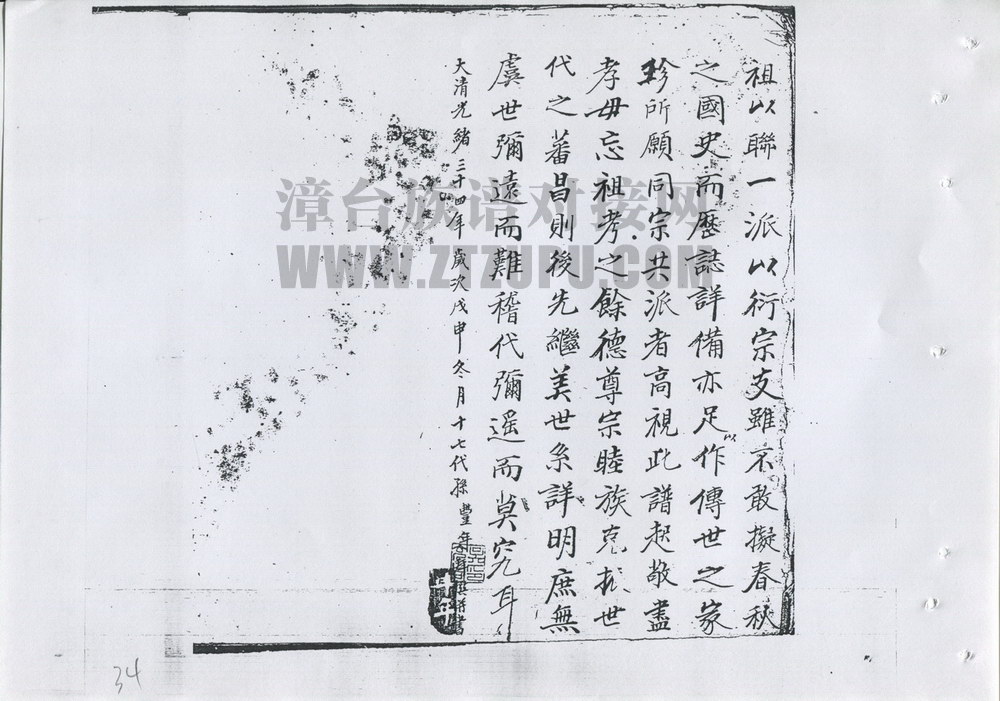 祖以聯一派以衍宗支雖不敢擬春秋
之國史而歷誌詳備亦足以作傳世之家
珍所願同宗共派者高視此譜起敬盡
孝毋忘祖考之餘德尊宗睦族克振世
代之蕃昌則後先繼美世系詳明庶無
虞世彌遠而難稽代彌遥而莫究耳
大清光緒三十四年歲次戊申冬月十七代孫豐年
漳台族谱对接网
WWW.ZTZUPU.COM
34